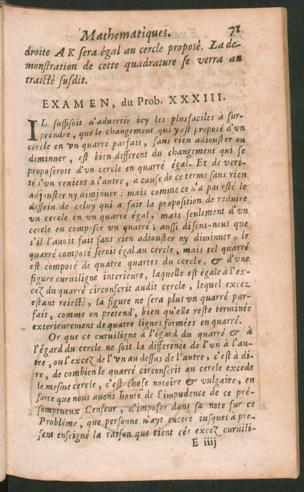 Mathematiques. 71
droite A K sera égal au cercle proposé. La de-
monstration de cette quadrature se verra au
traicté susdit.
EXAMEN, du Prob. XXXIII.
IL suffisoit d'aduertir icy les plus faciles à sur-
prendre, que le changement qui y est proposé d'vn
cercle en vn quarré parfait, sans rien adiouster ou
diminuer, est bien different du changement qui se
proposeroit d'vn cercle en quarré égal. Et de veri-
té l'vn reuient à l'autre, à cause de ce terme sans rien
adiouster ny diminuer: mais comme ce n'a pas esté le
dessein de celuy qui a fait la proposition de reduire
vn cercle en vn quarré égal, mais seulement d'vn
cercle en composer vn quarré; aussi disons-nous que
s'il l'auoit fait sans rien adiouster ny diminuer, le
quarré composé seroit égal au cercle, mais tel quarré
est composé de quatre quartes du cercle, & d'vne
figure curuiligne interieure, laquelle est égale à l'ex-
cez du quarré circonscrit audit cercle, lequel excez
estant reiecté, la figure ne sera plus vn quarré par-
fait, comme on pretend, bien qu'elle reste terminée
exterieurement de quatre lignes formées en quarré.
Or que ce curuiligne à l'égard du quarré & à
l'égard du cercle ne soit la difference de l'vn à l'au-
tre, ou l'excez de l'vn au dessus de l'autre, c'est à di-
re, de combien le quarré circonscrit au cercle excede
le mesme cercle, c'est chose notoire & vulgaire, en
sorte que nous auons honte de l'impudence de ce pré-
somptueux Censeur, d'imposer dans sa note sur ce
Problème, que personne n'ayt encore iusques à pre-
sent enseigné la raison que tient cét excez curuili-
E iiij